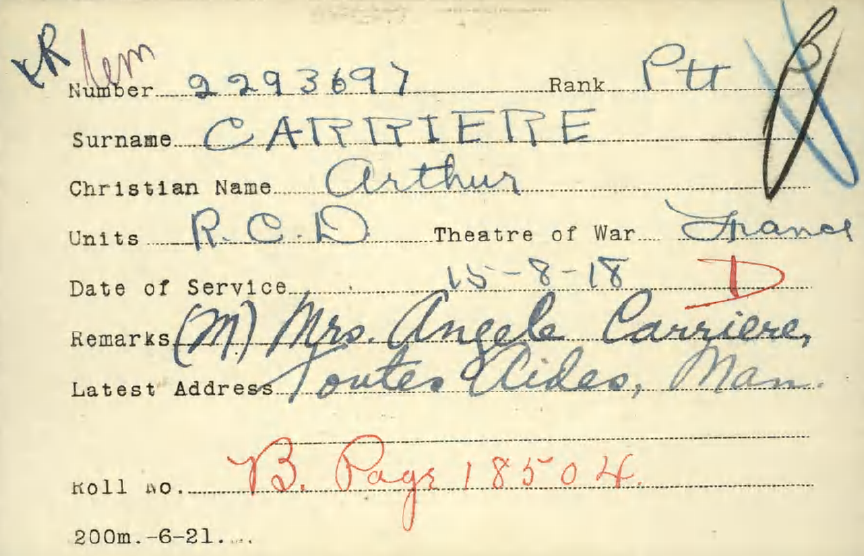 Number 2293697 Rank Ptt
Surname CARRIERE
Christian Name Arthur
Units R.C.D Theatre of War France
Date of Service 15-8-18 D
Remarks (M) Mrs. Angele Carriere,
Latest Address Toutes Aides, Man.
Roll No. B. Page 18504.
200m.-6-21.